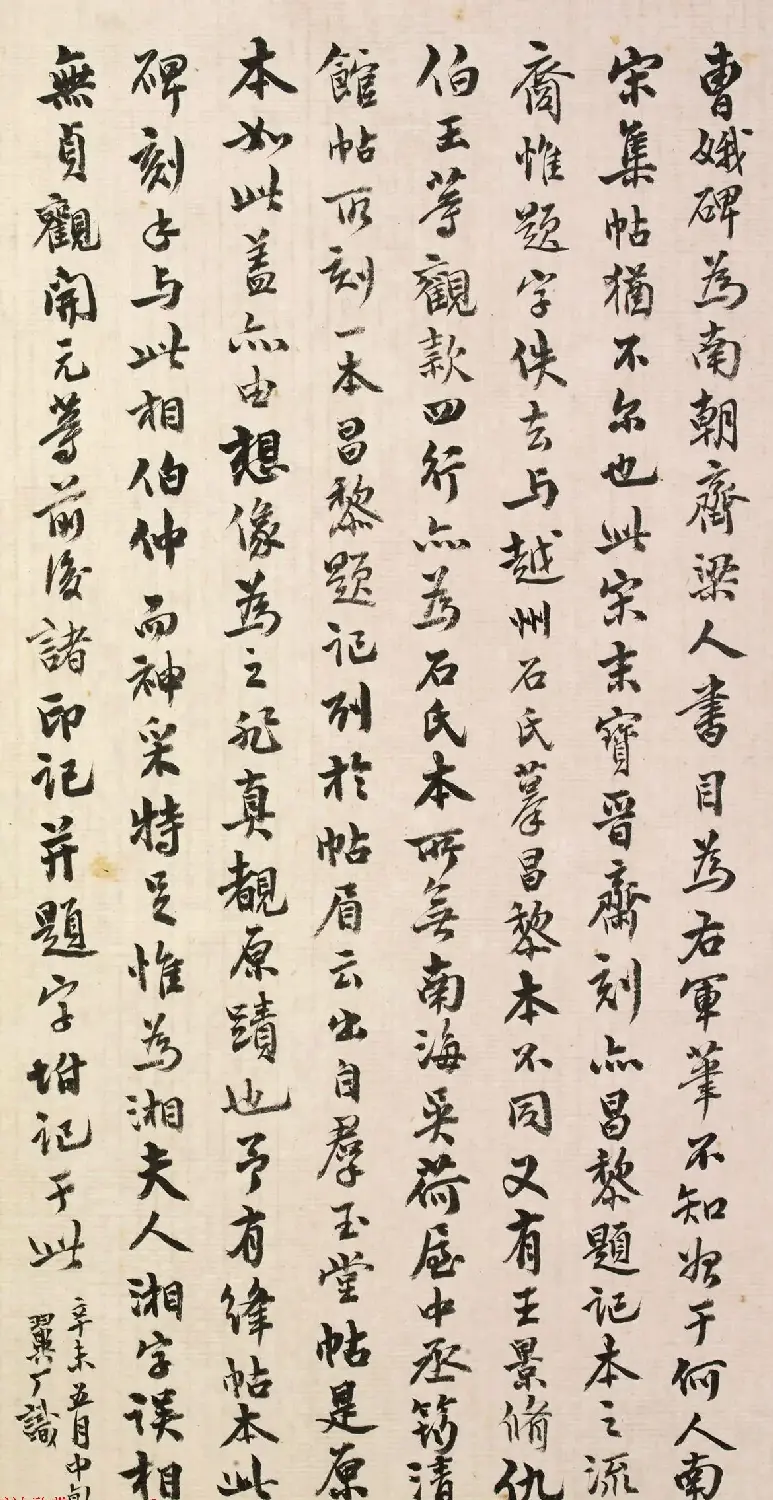 曹娥碑為南朝齊梁人書目為右軍筆不知始于何人南
宋集帖猶不尔也此宋末寶晉齋刻亦昌黎題記本之流
裔惟題字佚去与越州石氏摹昌黎本不同又有王景脩仇
伯玉等觀款四行亦為石氏本所無南海吳荷屋中丞筠清
館帖所刻一本昌黎題记列於帖眉云出自羣玉堂帖是原
本如此盖亦由想像為之非真覩原蹟也予有絳帖本此
碑刻手与此相伯仲而神采特足惟為湘夫人湘字误相
無貞觀開元等前後諸印记并題字坿记于此
辛未五月中旬
翼丁識